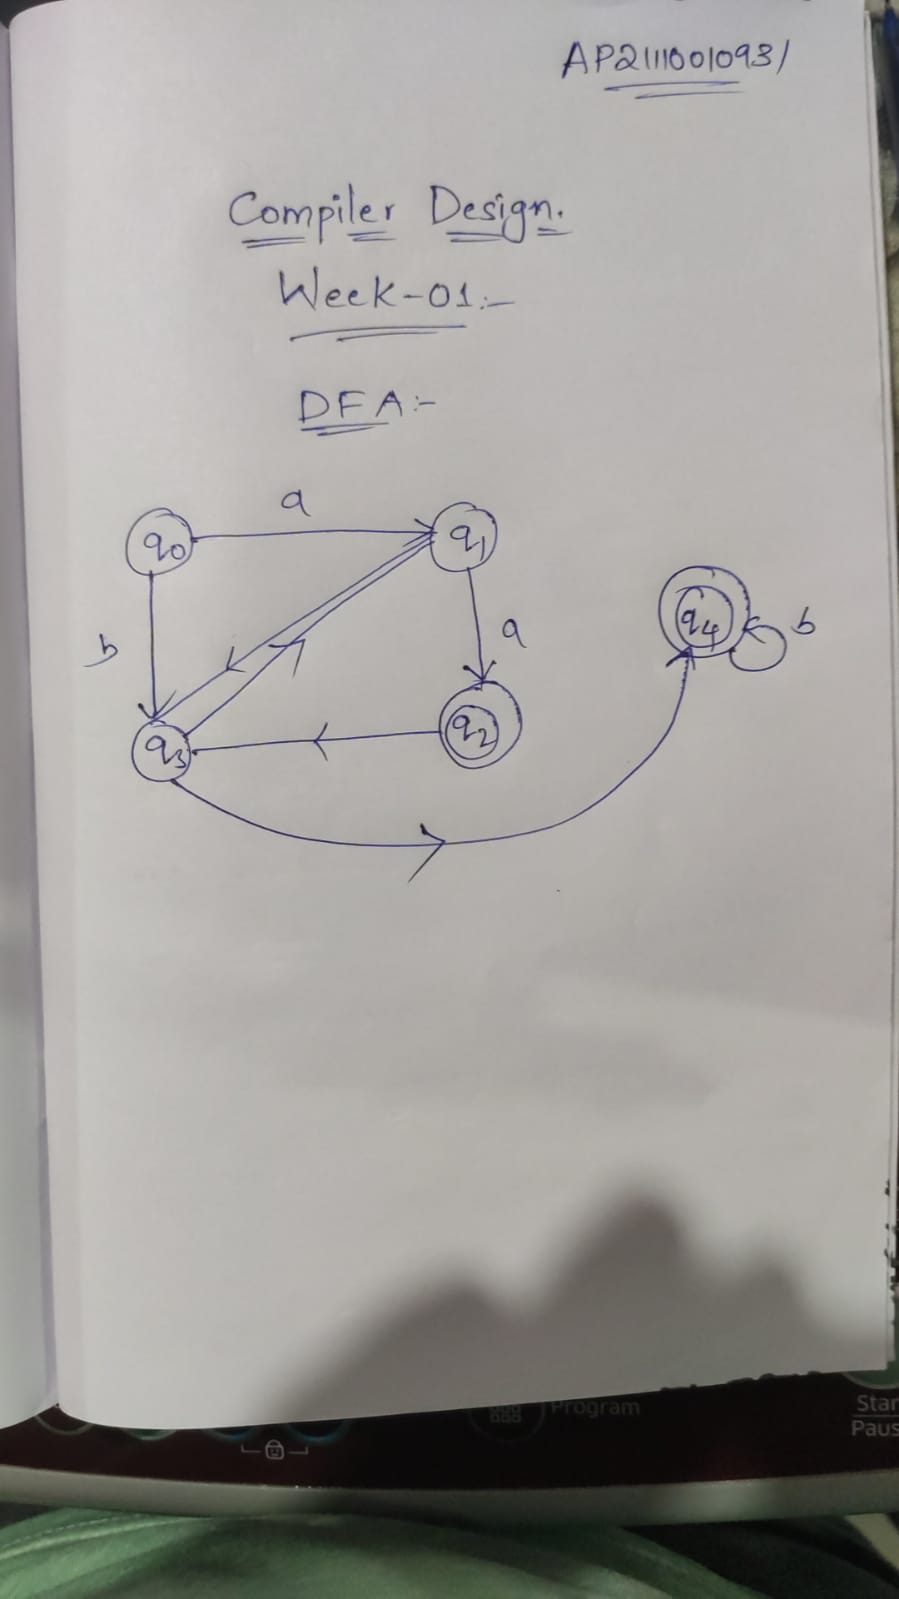 AP21110010931
Compiler Design.
Week-01:-
DFA:-
a
q0
q1
b
a
q4
b
q3
q2
Program
Star
Paus